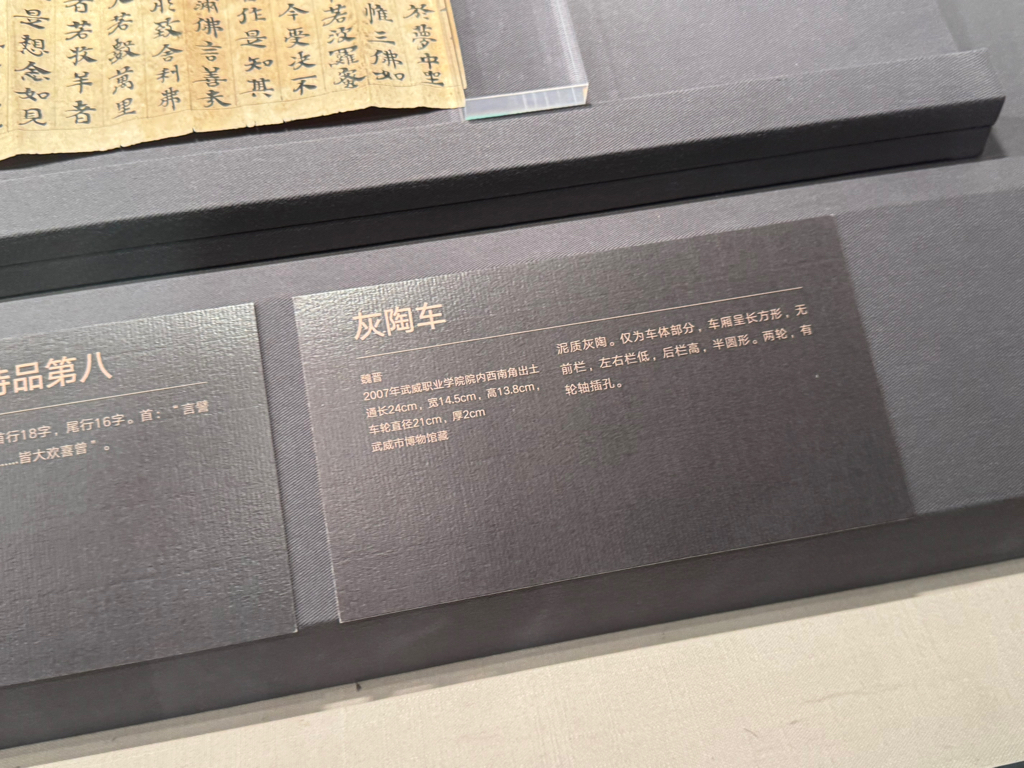 於夢中
惟三佛如
若波羅蜜
今受决不
作是知其
佛言善夫
致舍利弗
若數萬里
者若牧羊者
是想念如見
持品第八
首行18字，尾行16字。首：“言譬
……皆大欢喜善”。
灰陶车
魏晋
2007年武威职业学院院内西南角出土
通长24cm，宽14.5cm，高13.8cm，
车轮直径21cm，厚2cm
武威市博物馆藏
泥质灰陶。仅为车体部分，车厢呈长方形，无
前栏，左右栏低，后栏高，半圆形。两轮，有
轮轴插孔。